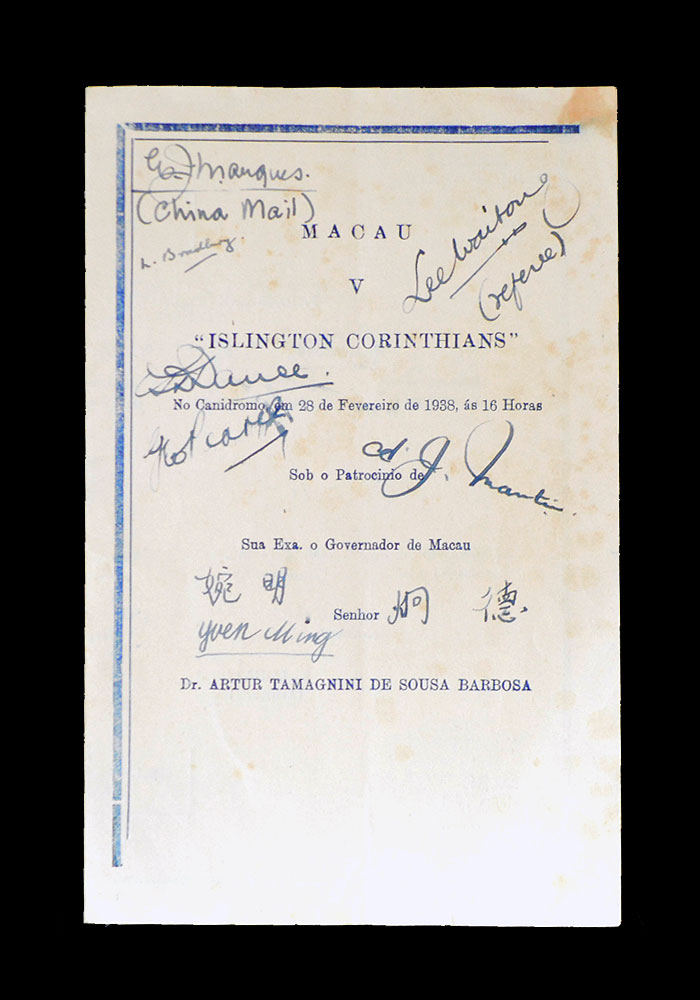 G. J. Marques.
(China Mail)
MACAU
L. Bradbury
Lee Wai Tong
(referee)
V
"ISLINGTON CORINTHIANS"
No Canidromo, em 28 de Fevereiro de 1938, ás 16 Horas
Sob o Patrocinio de
J. Martin.
Sua Exa. o Governador de Macau
婉明
Senhor
炯 德
Yuen Ming
Dr. ARTUR TAMAGNINI DE SOUSA BARBOSA